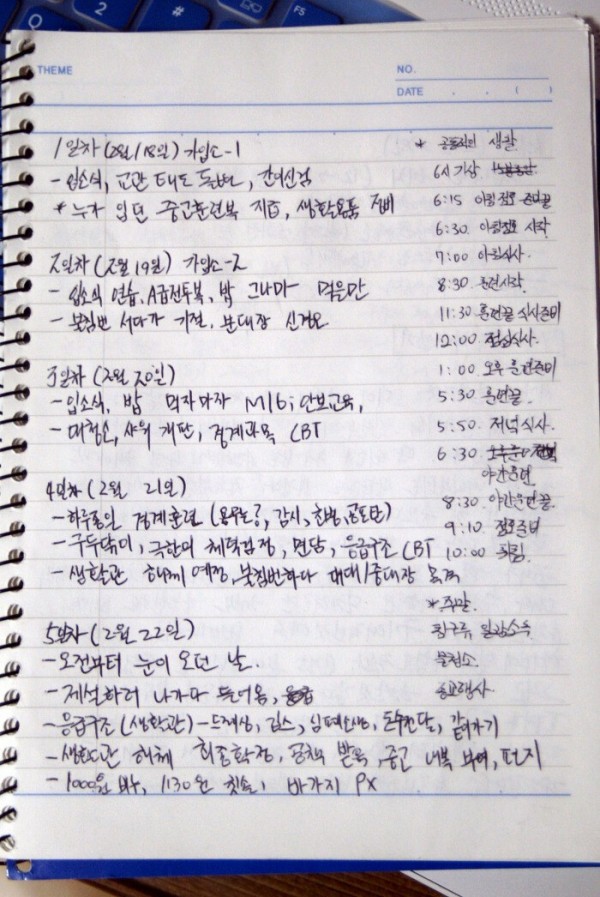 THEME
NO.
DATE . . ( )
1일차 (2월 18일) 가입소-1
- 입소식, 교관 태도 돌변, 간이신검
* 누가 입던 중고훈련복 지급, 생활용품 정비
2일차 (2월 19일) 가입소-2
- 입소식 연습, A급전투복, 밥 그나마 먹을만
- 불침번 서다가 기절, 분대장
3일차 (2월 20일)
- 입소식, 밥 먹자마자 M16, 안보교육,
- 대청소, 샤워 개판, 경계과목 CBT
4일차 (2월 21일)
- 하루종일 경계훈련 (, 감시, , )
- 구두닦이, 극한의 체력검정, 면담, 응급구조 CBT
- 생활관 해체 예정, 불침번하다 대대/중대장
5일차 (2월 22일)
- 오전부터 눈이 오던 날
- 제설하러 나가다 들어옴,
- 응급구조 (생활관) - , 깁스, 심폐소생,
- 생활관 해체 최종확정, 공책 받음, 중고 내복 , 편지
- 1000원 , 1130원 칫솔, 바가지 PX
* 공통적인 생활
6시 기상
6:15 아침점호
6:30 아침점호 시작
7:00 아침식사
8:30 훈련시작
11:30 훈련끝 식사준비
12:00 점심식사
1:00 오후 훈련준비
5:30 훈련끝
5:50 저녁식사
6:30
야간훈련
8:30 야간훈련끝
9:10 점호준비
10:00 취침
* 주말
물청소
종교행사